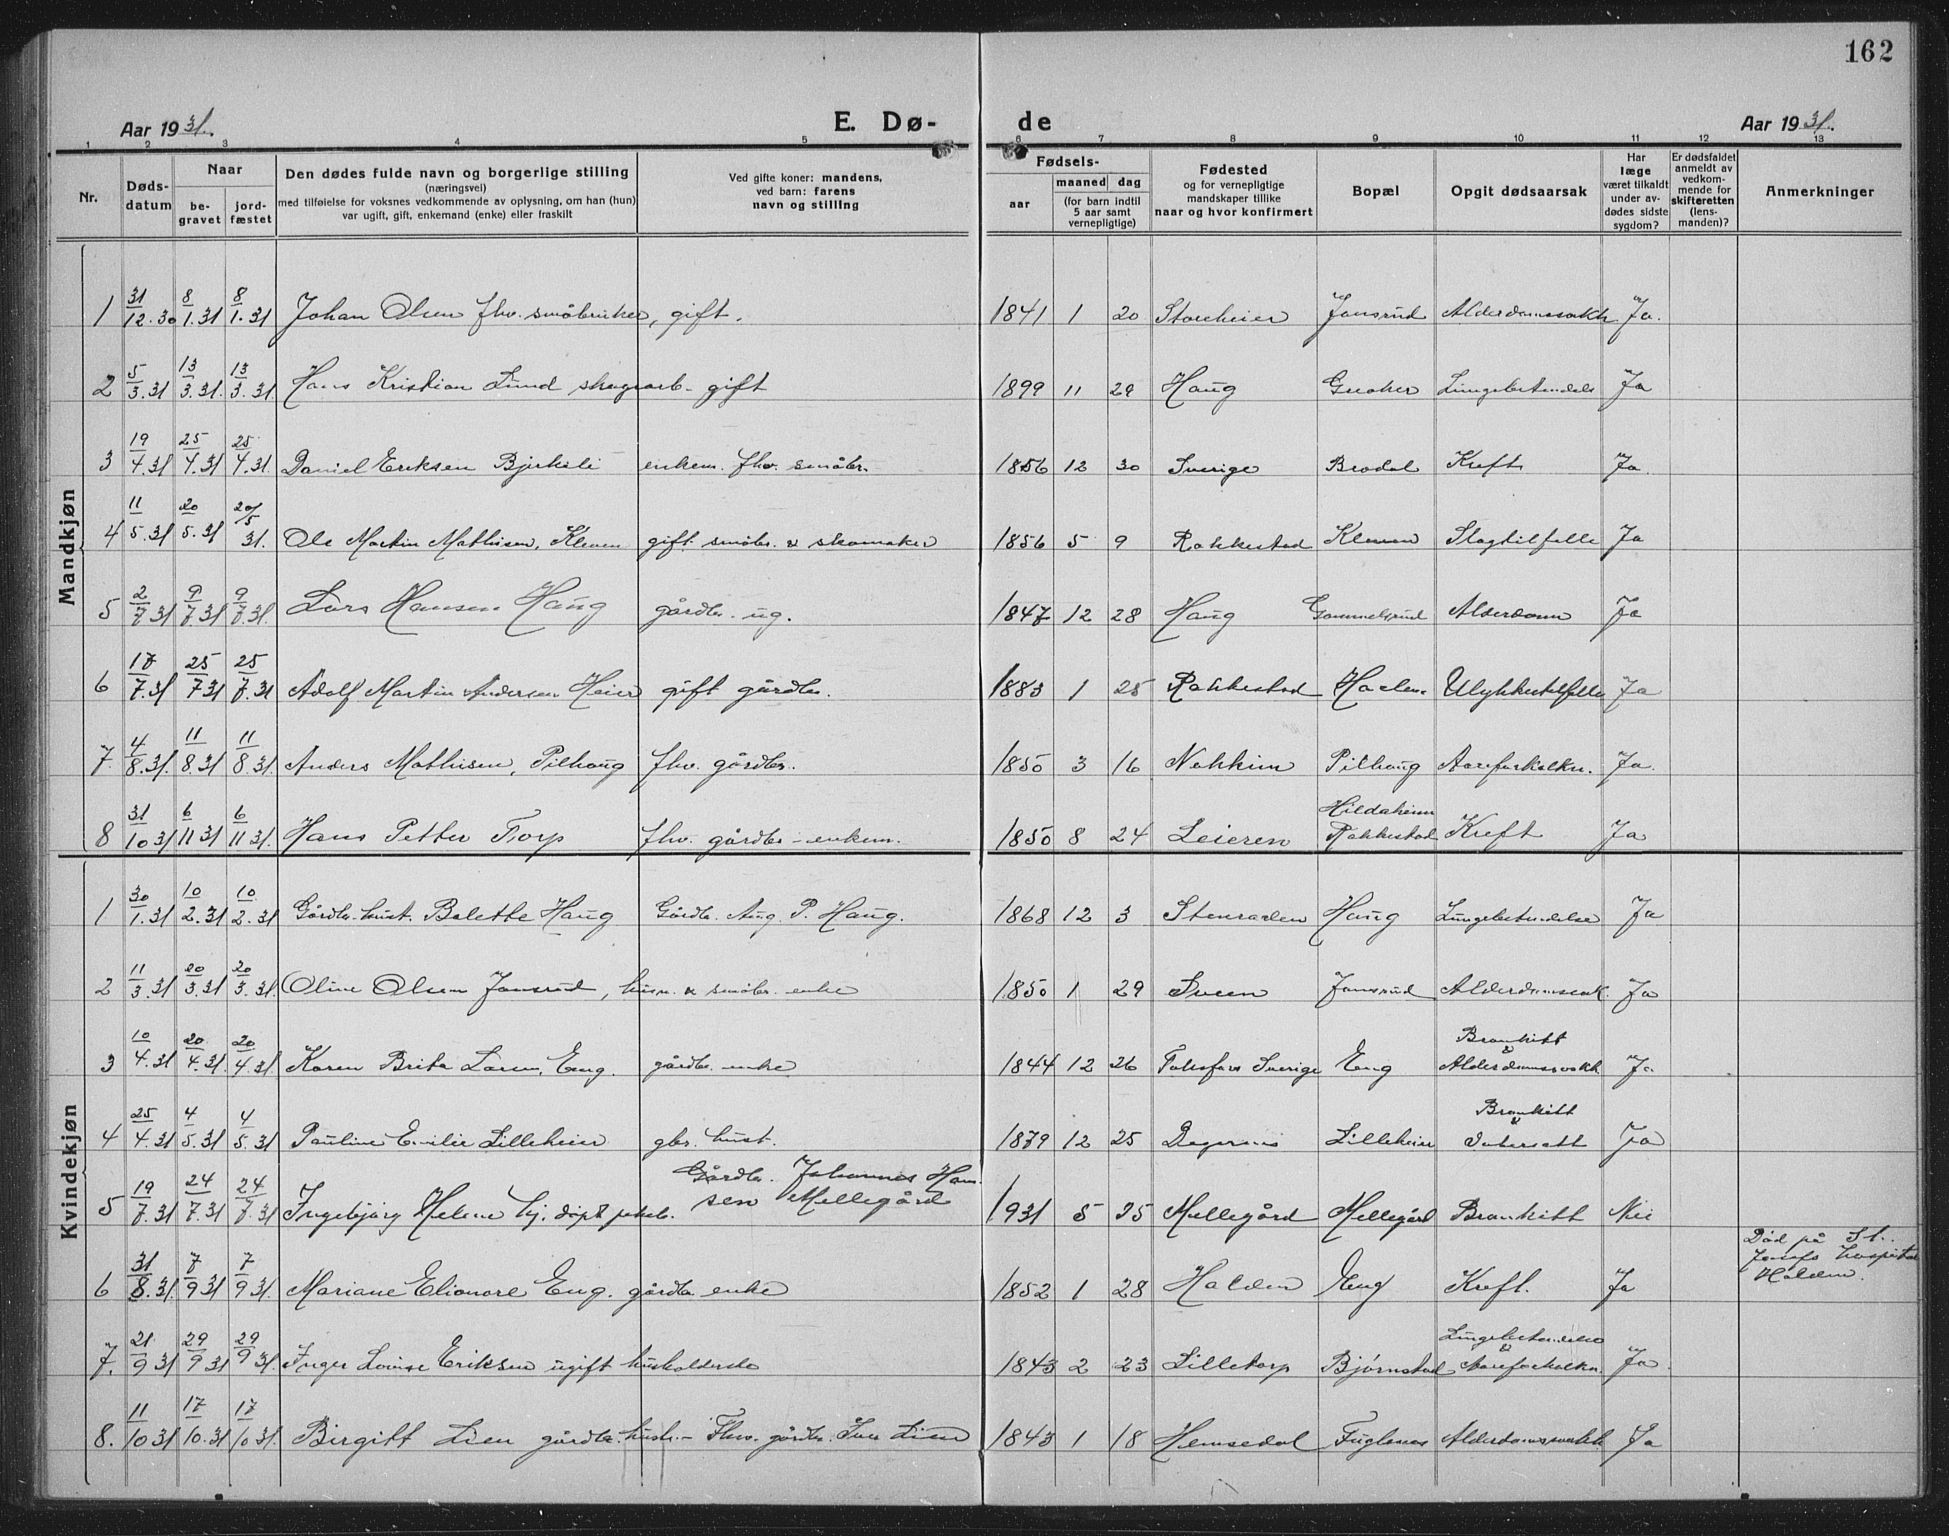 162
Aar 1931. E. Dø- de Aar 1931.
1 2 3 4 5 6 7 8 9 10 11 12 13
Nr. Døds-datum Naar be-gravet jord-fæstet Den dødes fulde navn og borgerlige stilling (næringsvei) med tilføielse for voksnes vedkommende av oplysning, om han (hun) var ugift, gift, enkemand (enke) eller fraskilt Ved gifte koner: mandens, ved barn: farens navn og stilling Fødsels- aar maaned dag (for barn indtil 5 aar samt vernepligtige) Fødested og for vernepligtige mandskaper tillike naar og hvor konfirmert Bopæl Opgit dødsaarsak Har læge været tilkaldt under av-dødes sidste sygdom? Er dødsfaldet anmeldt av vedkom-mende for skifteretten (lens-manden)? Anmerkninger
Mandkjøn
1 31/12.30 8/1.31 8/1.31 Johan Olsen fhv. småbruker, gift. 1841 1 20 Storeheier Jonsrud Alderdomssvakh. Ja.
2 5/3.31 13/3.31. 13/3.31. Hans Kristian Lund skogsarb- gift 1899 11 29 Haug Gruaker Lungebetendels Ja
3 19/4.31 25/4.31 25/4.31. Daniel Eriksen Bjerkeli enkem. fhv. småbr. 1856 12 30 Sverige Brødal Kreft Ja
4 11/5.31 20/5.31 20/5 31. Ole Martin Mathisen, Kleven gift småbr. & skomaker 1856 5 9 Rakkestad Kleven Slagtilfelle Ja
5 2/7 31 9/7 31 9/7.31. Lars Hansen Haug gårdbr. ug. 1847 12 28 Haug Gammelsrud Alderdom Ja
6 17/7.31 25/7 31 25/7.31 Adolf Martin Andersen Heier gift gårdbr. 1883 1 25 Rakkestad Ulykkestilfelle Ja
7. 4/8.31. 11/8.31 11/8 31. Anders Mathisen, Pilhaug fhv. gårdbr. 1850 3 16 Nokkim Pilhaug Aareforkalkn. Ja.
8 31/10 31 6/11 31 6/11 31. Hans Petter Torp fhv. gårdbr - enkem. 1850 8 24 Leieren Hildaheim Rakkestad Kreft Ja
Kvindekjøn
1 30/1.31 10/2.31 10/2.31 Gårdbr.hust. Bolette Haug Gårdbr. Aug. P. Haug. 1868 12 3 Haug Lungebetendelse Ja
2 11/3.31 20/3.31 20/3.31. Oline Olsen Jonsrud, husm. & småbr. enke 1850 1 29 Sveen Jonsrud Alderdomssvak. Ja
3 10/4.31 20/4.31. 20/4.31. Karen Brita Larsen, Eng. gårdbr. enke 1844 12 26 Sverige Eng Bronkitt & Alderdomssvakh. Ja
4 25/4.31 4/5.31 4/5.31 Pauline Emilie Lilleheier gbr. hust. 1879 12 25 Degernes Lilleheier Bronkitt & Ja
5 19/7.31 24/7.31 24/7 31 Ingebjørg Helene hj. døpt Gårdbr. Johannes Han-
sen Mellegård 1931 5 25 Mellegård Mellegård Bronkitt Nei
6 31/8.31. 7/9 31 7/9 31. Mariane Elionore Eng. gårdbr. enke 1852 1 28 Halden Eng Kreft. Ja Død på St.
Josefs hospital
Halden.
7. 21/9 31 29/9 31 29/9 31. Inger Lovise Eriksen ugift husholderske 1843 2 23 Lilletorp Bjørnstad Lungebetendelse & Aareforkalkn. Ja
8. 11/10 31 17/10.31 17/10 31. Birgitt Lien gårdbr. hustr. - Fhv. gårdbr. Iver Lien 1843 1 18 Hemsedal Fuglenes Alderdomssvakh Ja